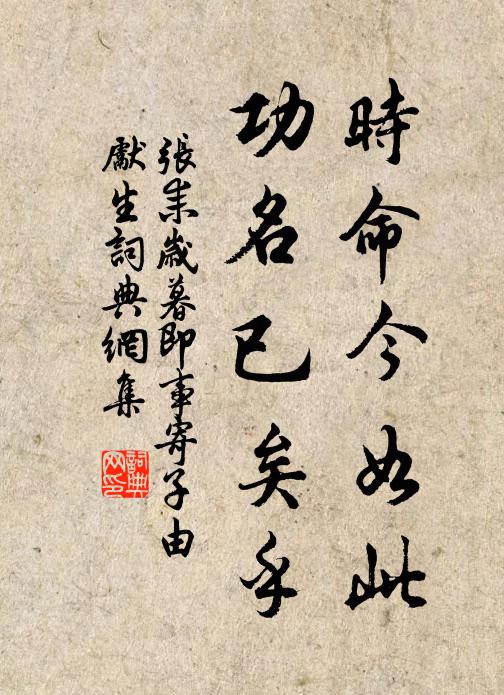 時命今如此
功名已矣乎
張耒歲暮即事寄子由
獻生詞典網集
詞典網印